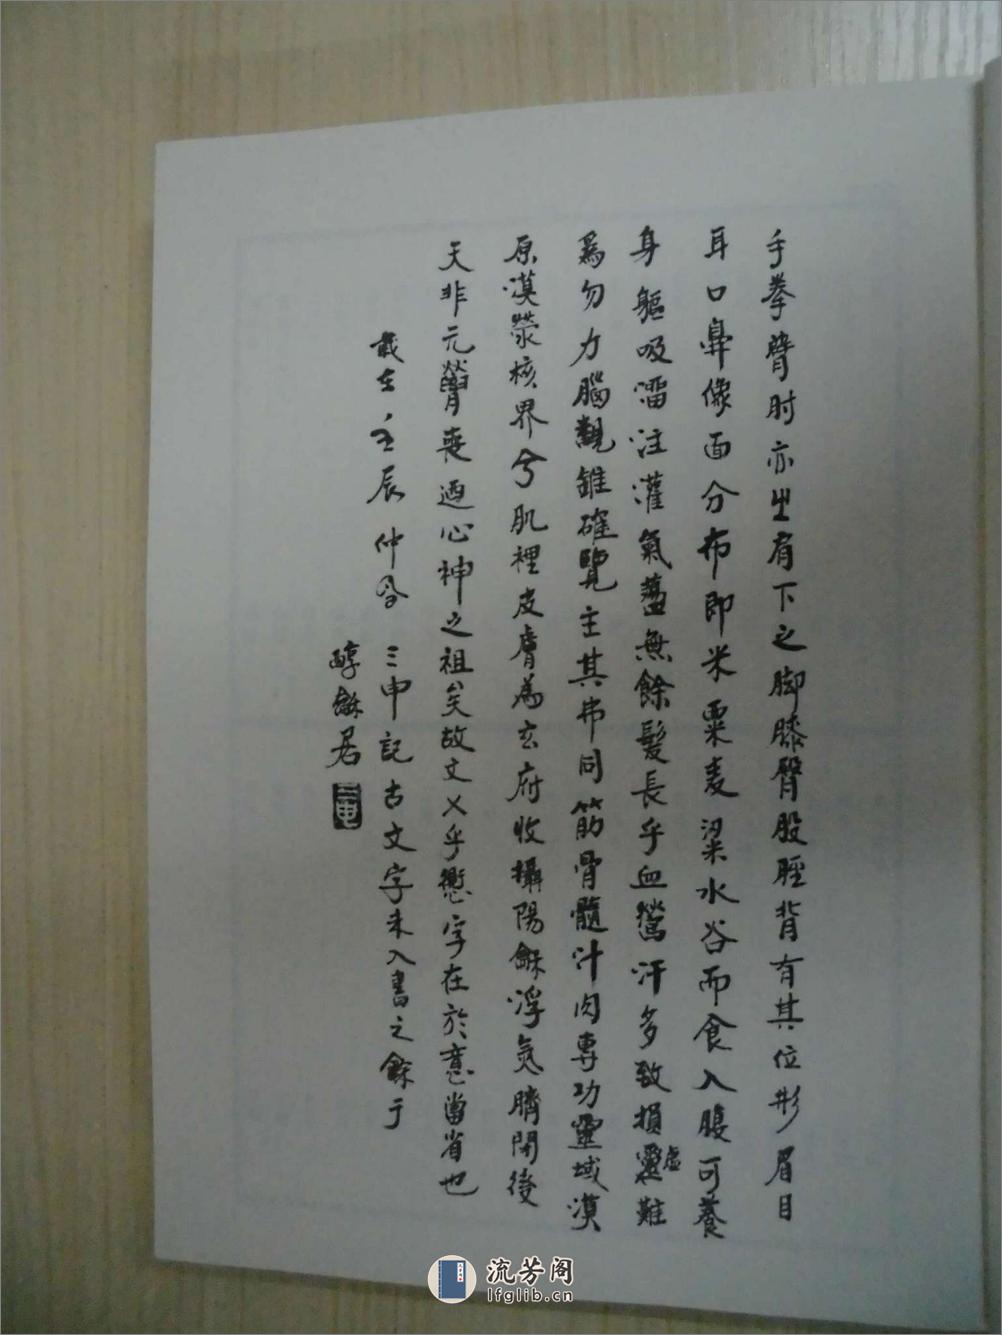 手拳臂肘亦㞢肩下之脚膝臀股脛背有其位形眉目
耳口鼻像面分布即米粟麦粱水谷而食入腹可養
身軀吸注灌氣無餘髮長乎血汗多致損靈虛難
為勿力腦觀雖確覽主其弗同筋骨髓汁肉專功靈域漠
原漠滎核界兮肌裡皮膚為玄府收攝陽龢浮氣臍閉後
天非元喪迺心神之祖矣故文乂乎字在於意當省也
歲在壬辰仲 三申記古文字未入書之餘于
醇龢居
三申
流芳阁
lfglib.cn